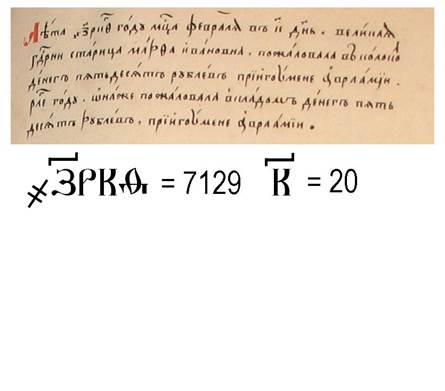 Лѣта ҂зрк҃ѳ годꙋ мц҃а февралѧ въ к҃ дн҃ь. великаѧ
гдрн҃и старица марѳа ивановна, пожаловала
денегъ пѧтьдесѧтъ рꙋблевъ при игꙋмене варламїи.
годꙋ, ѡнаже пожаловала вкладомъ денегъ пѧть
десѧтъ рꙋблевъ, при игꙋмене варламїи.
҂ЗРКѲ҃ = 7129 К҃ = 20